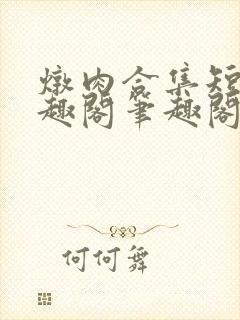 燉肉合集短
趣閣笔趣閣
何何舞